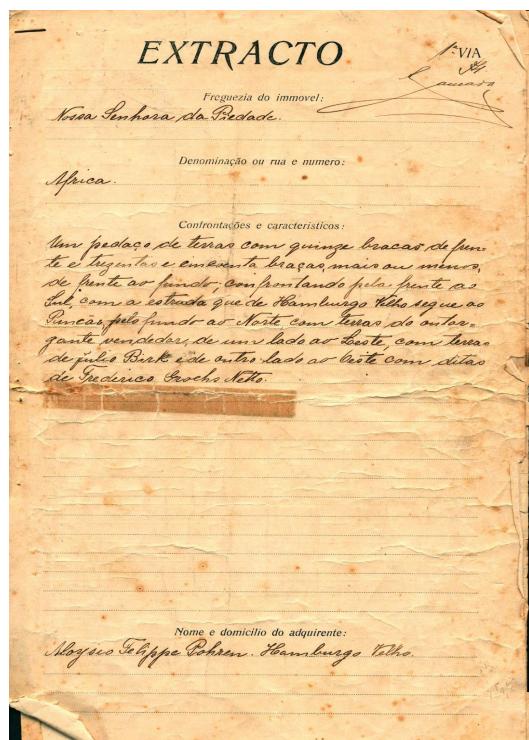 EXTRACTO
1ª VIA
Freguezia do immovel:
Nossa Senhora da Piedade.
Denominação ou rua e numero:
Africa.
Confrontações e caracteristicos:
Um pedaço de terras com quinze braças de fren-
te e trezentas e cincoenta braças, mais ou menos,
de frente ao fundo; confrontando pela frente ao
Sul, com a estrada que de Hamburgo Velho segue ao
pelo fundo ao Norte, com terras do outor-
gante vendedor, de um lado ao Leste, com terras
de Julio Birk e de outro lado ao Oéste com ditas
de Frederico Netto.
Nome e domicilio do adquirente:
Aloysio Felippe Pohren. Hamburgo Velho.